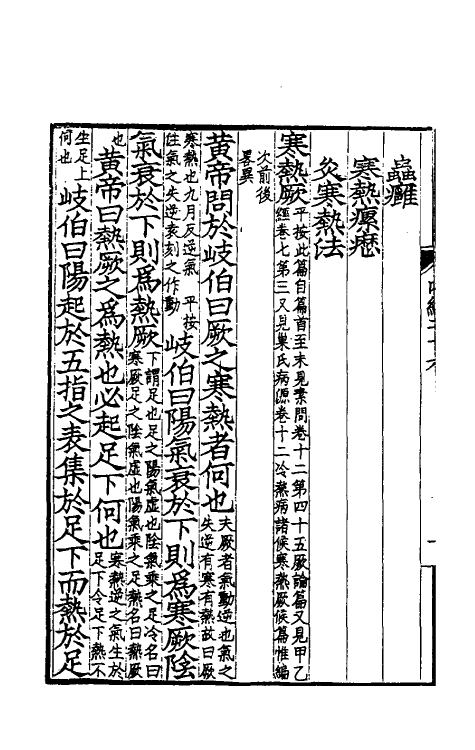 蟲癰
寒熱瘰癧
灸寒熱法
寒熱厥平按此篇自篇首至末見素問卷十二第四十五厥論篇又見甲乙
經卷七第三又見巢氏病源卷十二冷熱病諸候寒熱厥候篇惟編
次前後
畧異
黄帝問於岐伯曰厥之寒熱者何也夫厥者氣動逆也氣之
失逆有寒有熱故曰厥
寒熱也九月反逆氣　平按
注氣之失逆袁刻之作動
岐伯曰陽氣衰於下則爲寒厥陰
氣衰於下則爲熱厥下謂足也足之陽氣虛也陰氣乘之足冷名曰
寒厥足之陰氣虛也陽氣乘之足熱名曰熱厥
也
黄帝曰熱厥之爲熱也必起足下何也寒熱逆之氣生於
足下令足下熱不
生足上
何也
岐伯曰陽起於五指之表集於足下而熱於足